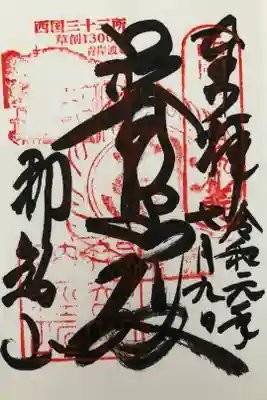 西国三十三所
草創1300
奉拝
令和元年
七月九日
普照殿
那智山